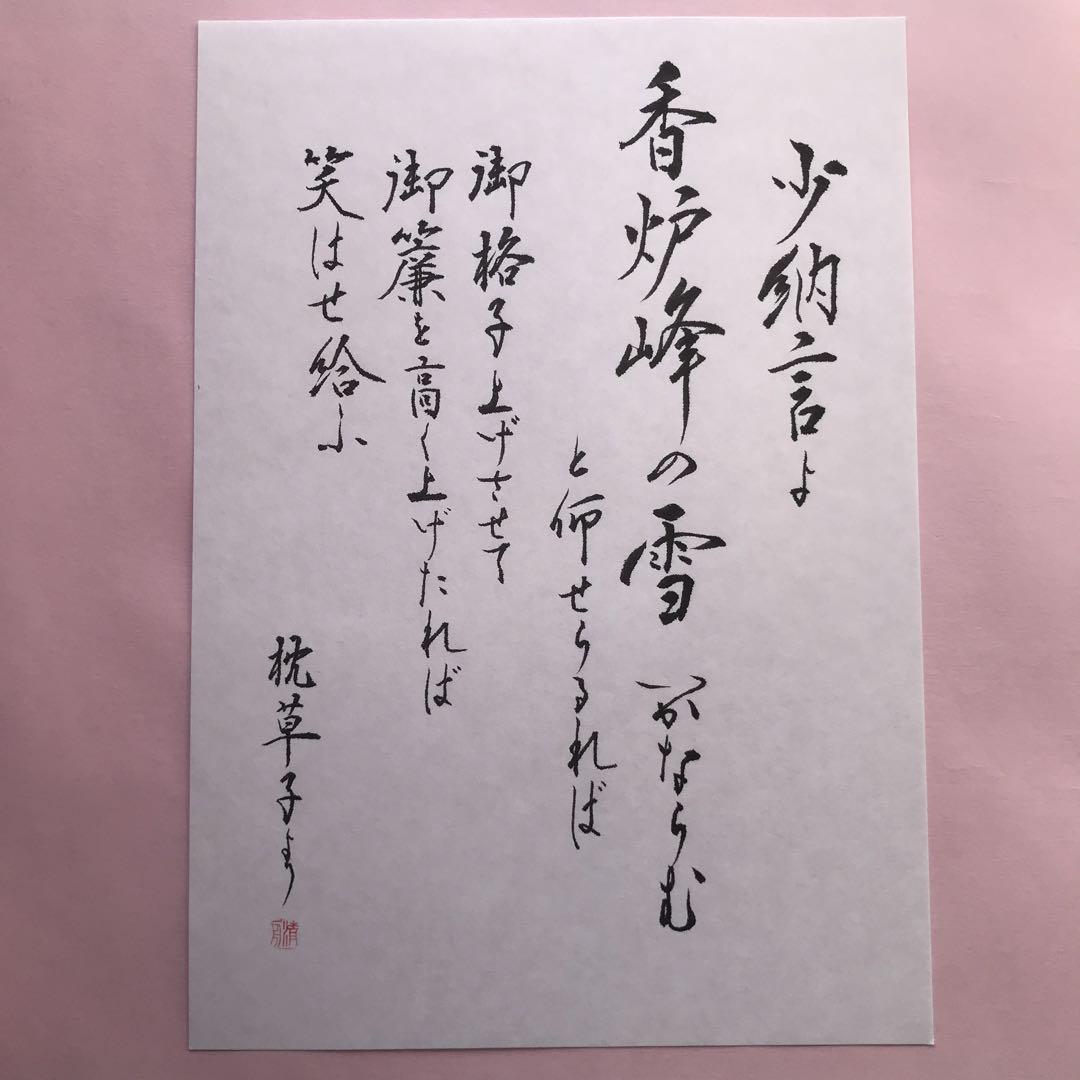 少納言よ
香炉峰の雪いかならむ
と仰せらるれば
御格子上げさせて
御簾を高く上げたれば
笑はせ給ふ
枕草子より